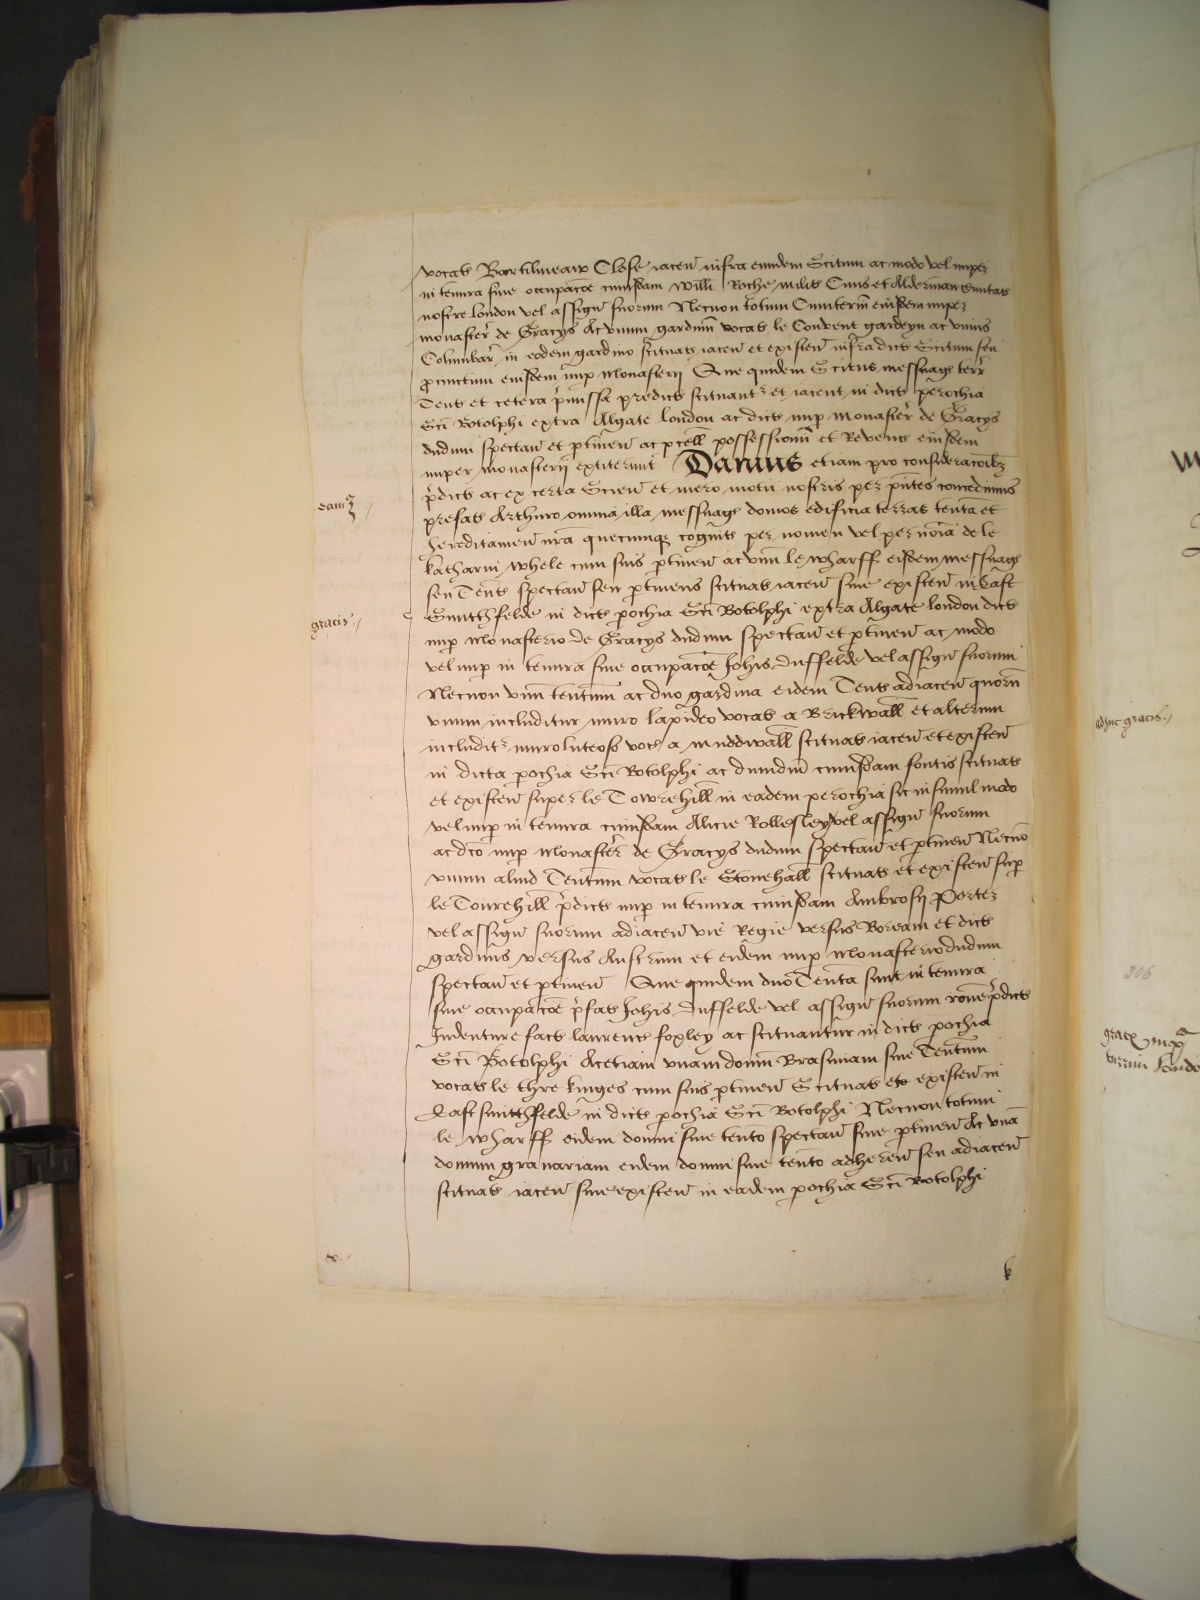 vocat Bartilmeaux Close iacen infra eundem Scitum ac modo vel nuper
in tenura sive occupacoe cuiusdam Willi Roche milit Civis et Alderman Civitat
nostre london vel assign suorum Necnon totum Cimiteriu eiusdem nuper
monaster de Gracys Ac vnum gardinu vocat le Covent gardeyn ac vnius
Columbar in eodem gardino scituat iacen et existen infra dict Scitum seu
pcinctum eiusdem nup Monasterij Que quidem Scitus messuag terr
Tent et cetera pmissa predict scituantr et iacent in dict perochia
Sci Botolphi extra Algate london ac dict nup Monaster de Gracys
dudum spectan et ptinen ac pcell possessionu et Revenc eiusdem
nuper monasterij extiterunt Damus etiam pro consideracoibz
pdict ac ex certa Scien et mero motu nostris per pntes concedimus
prefat Arthuro omnia illa messuag domos edificia terras tenta et
hereditamen nra quecumqz cognit per nomen vel per noia de le
Katharin Whele cum suis ptinen ac vnu le wharff eisdem messuag
seu Tent spectan seu ptinens scituat iacen sive existen in Est
Smithfelde in dict pochia Sci Botolphi extra Algate london dict
nup Monasterio de Gracys dudum spectan et ptinen ac modo
vel nup in tenura sive occupacoe Johis Duffelde vel assign suorum
Necnon vnu tentum ac duo gardina eidem Tent adiacen quoru
vnum includitur muro lapideo vocat a Brickwall et alterum
includitr muro luteoso voc a Muddwall scituat iacen et existen
in dicta pochia Sci Botolphi ac dimidiu cuiusdam fontis scituat
et existen super le Towrehill in eadem perochia sic insimul modo
vel nup in tenura cuiusdam Alicie Rollesley vel assign suorum
ac dco nup Monaster de Gracys dudum spectan et ptinen Necno
vnum aliud Tentum vocat le Stonehall scituat et existen sup
le Tourehill pdict nup in tenura cuiusdam Ambrosij Porter
vel assign suorum adiacen vie Regie versus Boream et dict
gardinis versus Austrum et eidem nup Monasterio dudum
spectan et ptinen Que quidem duo Tenta sunt in tenura
sive occupacoe pfat Johis Duffelde vel assign suorum
Indenture fact laurenc foxley ac scituantur in dict pochia
Sci Botolphi Ac etiam vnam domu Brasinam sive Tentum
vocat le thre kinges cum suis ptinen Scituat et existen in
Estsmithfelde in dict pochia Sci Botolphi Necnon totum
le wharff eidem domui sive tento spectan sive ptinen Ac vna
domum granariam eidem domui sive tento adheren seu adiacen
scituat iacen sive existen in eadem pochia Sci Botolphi
gracis
adhuc gracis
306